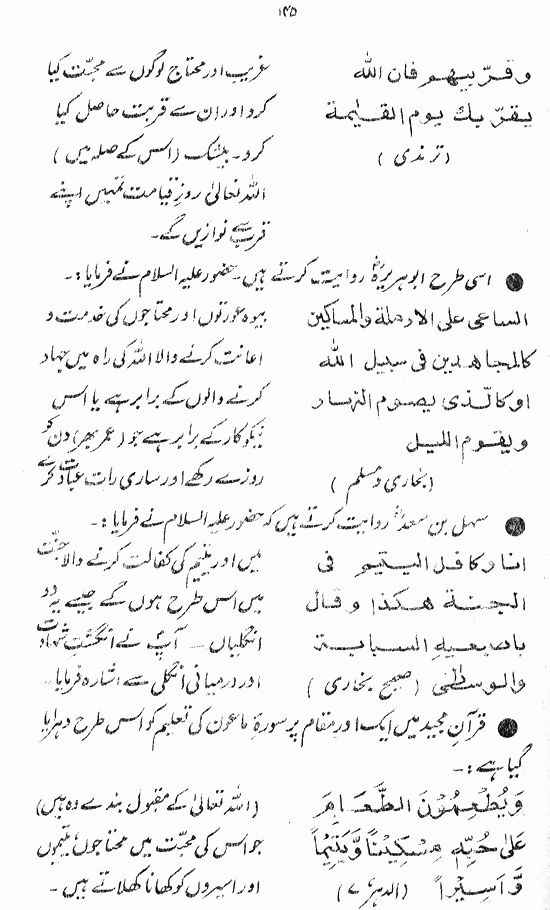 ۱۴۵
وقرّبيهم فان الله
يقرّبك يوم القيٰمة
(ترمذی)
غریب اور محتاج لوگوں سے محبّت کیا
کرو اور ان سے قربت حاصل کیا
کرو۔ بیشک (اس کے صلہ میں)
اللہ تعالیٰ روزِ قیامت تمہیں اپنے
قرب سے نوازیں گے۔
● اسی طرح ابوہریرہؓ روایت کرتے ہیں۔ حضور علیہ السلام نے فرمایا:۔
الساعى على الارملة والمساكين
كالمجاهدين فى سبيل الله
اوكالّذى يصوم النهار
ويقوم الليل
(بخاری و مسلم)
بیوہ عورتوں اور محتاجوں کی خدمت و
اعانت کرنے والا اللہ کی راہ میں جہاد
کرنے والوں کے برابر ہے یا اس
نیکوکار کے برابر ہے جو (عمر بھر) دن کو
روزے رکھے اور ساری رات عبادت کرے
● سہل بن سعدؓ روایت کرتے ہیں کہ حضور علیہ السلام نے فرمایا:۔
انا وكافل اليتيم فى
الجنة هكذا وقال
باصبعيه السبابة
والوسطىٰ (صحیح بخاری)
میں اور یتیم کی کفالت کرنے والا جنّت
میں اس طرح ہوں گے جیسے یہ دو
انگلیاں۔ آپؐ نے انگشت شہادت
اور درمیانی انگلی سے اشارہ فرمایا۔
● قرآنِ مجید میں ایک اور مقام پر سورۂ ماعون کی تعلیم کو اس طرح دہرایا
گیا ہے:۔
وَيُطْعِمُوْنَ الطَّعَامَ
عَلٰى حُبِّهٖ مِسْكِيْنًا وَّيَتِيْمًا
وَّاَسِيْرًا (الدہر، ۷)
(اللہ تعالیٰ کے مقبول بندے وہ ہیں)
جو اس کی محبّت میں محتاجوں، یتیموں
اور اسیروں کو کھانا کھلاتے ہیں۔